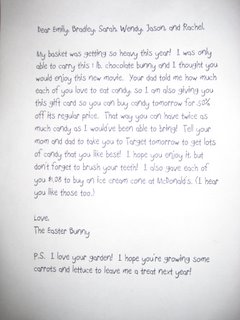 Dear Emily, Bradley, Sarah, Wendy, Jason, and Rachel,
My basket was getting so heavy this year! I was only
able to carry this 1 lb. chocolate bunny and I thought you
would enjoy this new movie. Your dad told me how much
each of you love to eat candy, so I am also giving you
this gift card so you can buy candy tomorrow for 50%
off its regular price. That way you can have twice as
much candy as I would've been able to bring! Tell your
mom and dad to take you to Target tomorrow to get lots
of candy that you like best! I hope you enjoy it, but
don't forget to brush your teeth! I also gave each of
you $1.08 to buy an ice cream cone at McDonald's. (I hear
you like those too.)
Love,
The Easter Bunny
P.S. I love your garden! I hope you're growing some
carrots and lettuce to leave me a treat next year!